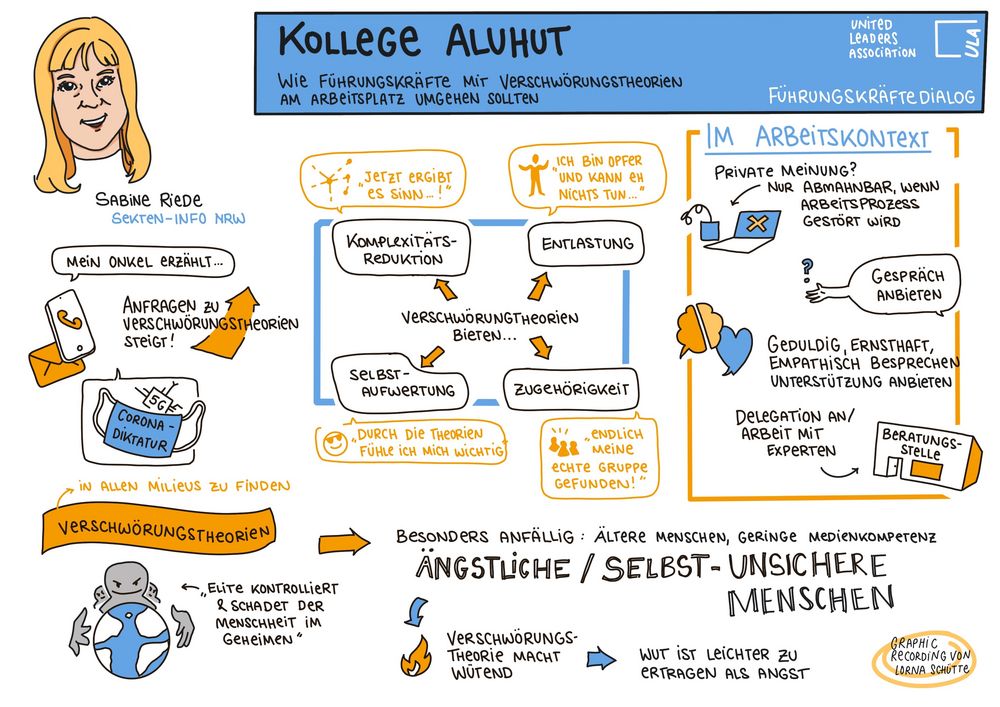 KOLLEGE ALUHUT
WIE FÜHRUNGSKRÄFTE MIT VERSCHWÖRUNGSTHEORIEN
AM ARBEITSPLATZ UMGEHEN SOLLTEN
UNITED
LEADERS
ASSOCIATION
ULA
FÜHRUNGSKRÄFTEDIALOG
SABINE RIEDE
SEKTEN-INFO NRW
MEIN ONKEL ERZÄHLT...
ANFRAGEN ZU
VERSCHWÖRUNGSTHEORIEN
STEIGT!
5G
CORONA-
DIKTATUR
"JETZT ERGIBT
ES SINN...!"
"ICH BIN OPFER
UND KANN EH
NICHTS TUN..."
KOMPLEXITÄTS-
REDUKTION
ENTLASTUNG
VERSCHWÖRUNGTHEORIEN
BIETEN...
SELBST-
AUFWERTUNG
ZUGEHÖRIGKEIT
„DURCH DIE THEORIEN
FÜHLE ICH MICH WICHTIG"
„ENDLICH
MEINE
ECHTE GRUPPE
GEFUNDEN!"
IM ARBEITSKONTEXT
PRIVATE MEINUNG?
NUR ABMAHNBAR, WENN
ARBEITSPROZESS
GESTÖRT WIRD
?
GESPRÄCH
ANBIETEN
GEDULDIG, ERNSTHAFT,
EMPATHISCH BESPRECHEN
UNTERSTÜTZUNG ANBIETEN
DELEGATION AN/
ARBEIT MIT
EXPERTEN
BERATUNGS-
STELLE
IN ALLEN MILIEUS ZU FINDEN
VERSCHWÖRUNGSTHEORIEN
„ELITE KONTROLLIERT
& SCHADET DER
MENSCHHEIT IM
GEHEIMEN"
BESONDERS ANFÄLLIG: ÄLTERE MENSCHEN, GERINGE MEDIENKOMPETENZ
ÄNGSTLICHE / SELBST-UNSICHERE
MENSCHEN
VERSCHWÖRUNGS-
THEORIE MACHT
WÜTEND
WUT IST LEICHTER ZU
ERTRAGEN ALS ANGST
GRAPHIC
RECORDING VON
LORNA SCHÜTTE